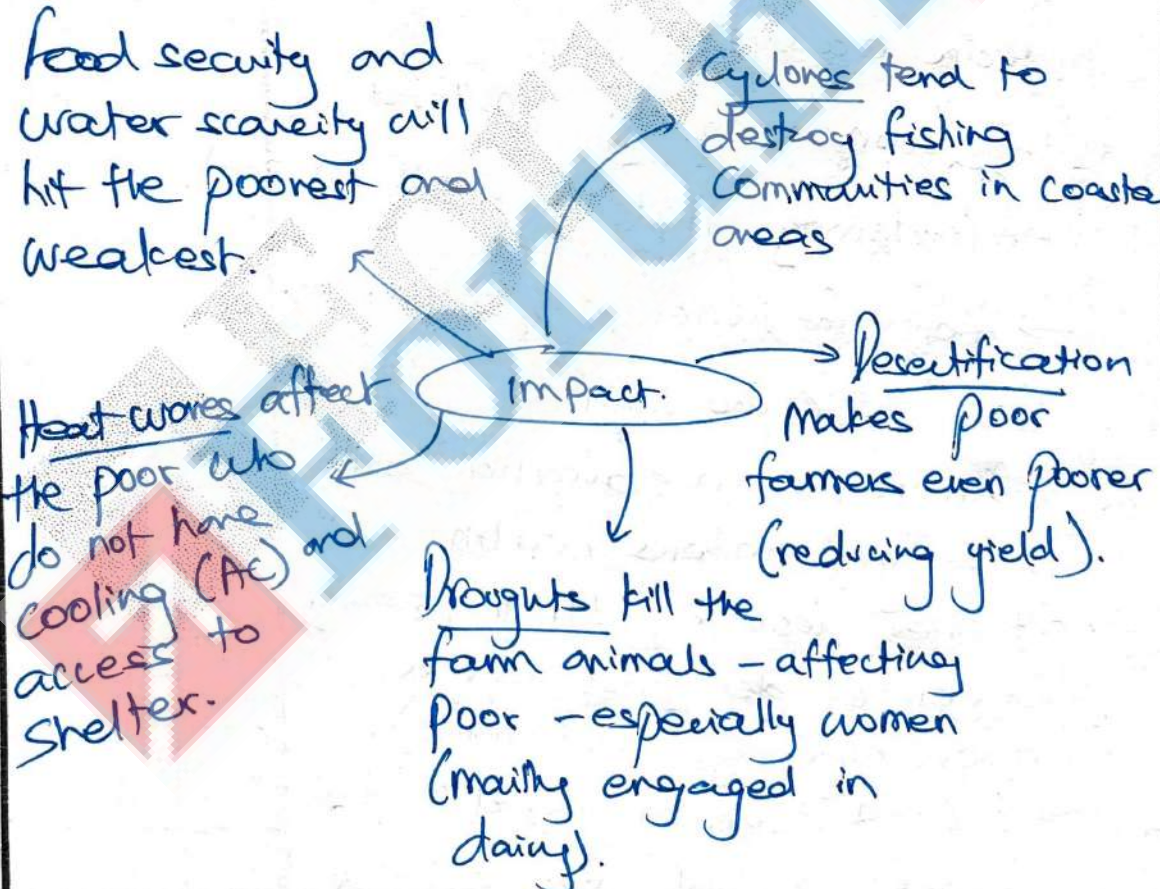 Food security and
water scarcity will
hit the poorest and
weakest.
Cyclones tend to
destroy fishing
Communities in coasta
areas
Impact.
Desertification
makes poor
farmers even poorer
(reducing yield).
Heat waves affect
the poor who
do not have
cooling (AC) and
access to
shelter.
Droughts kill the
farm animals – affecting
poor – especially women
(mainly engaged in
dairy).
Forum